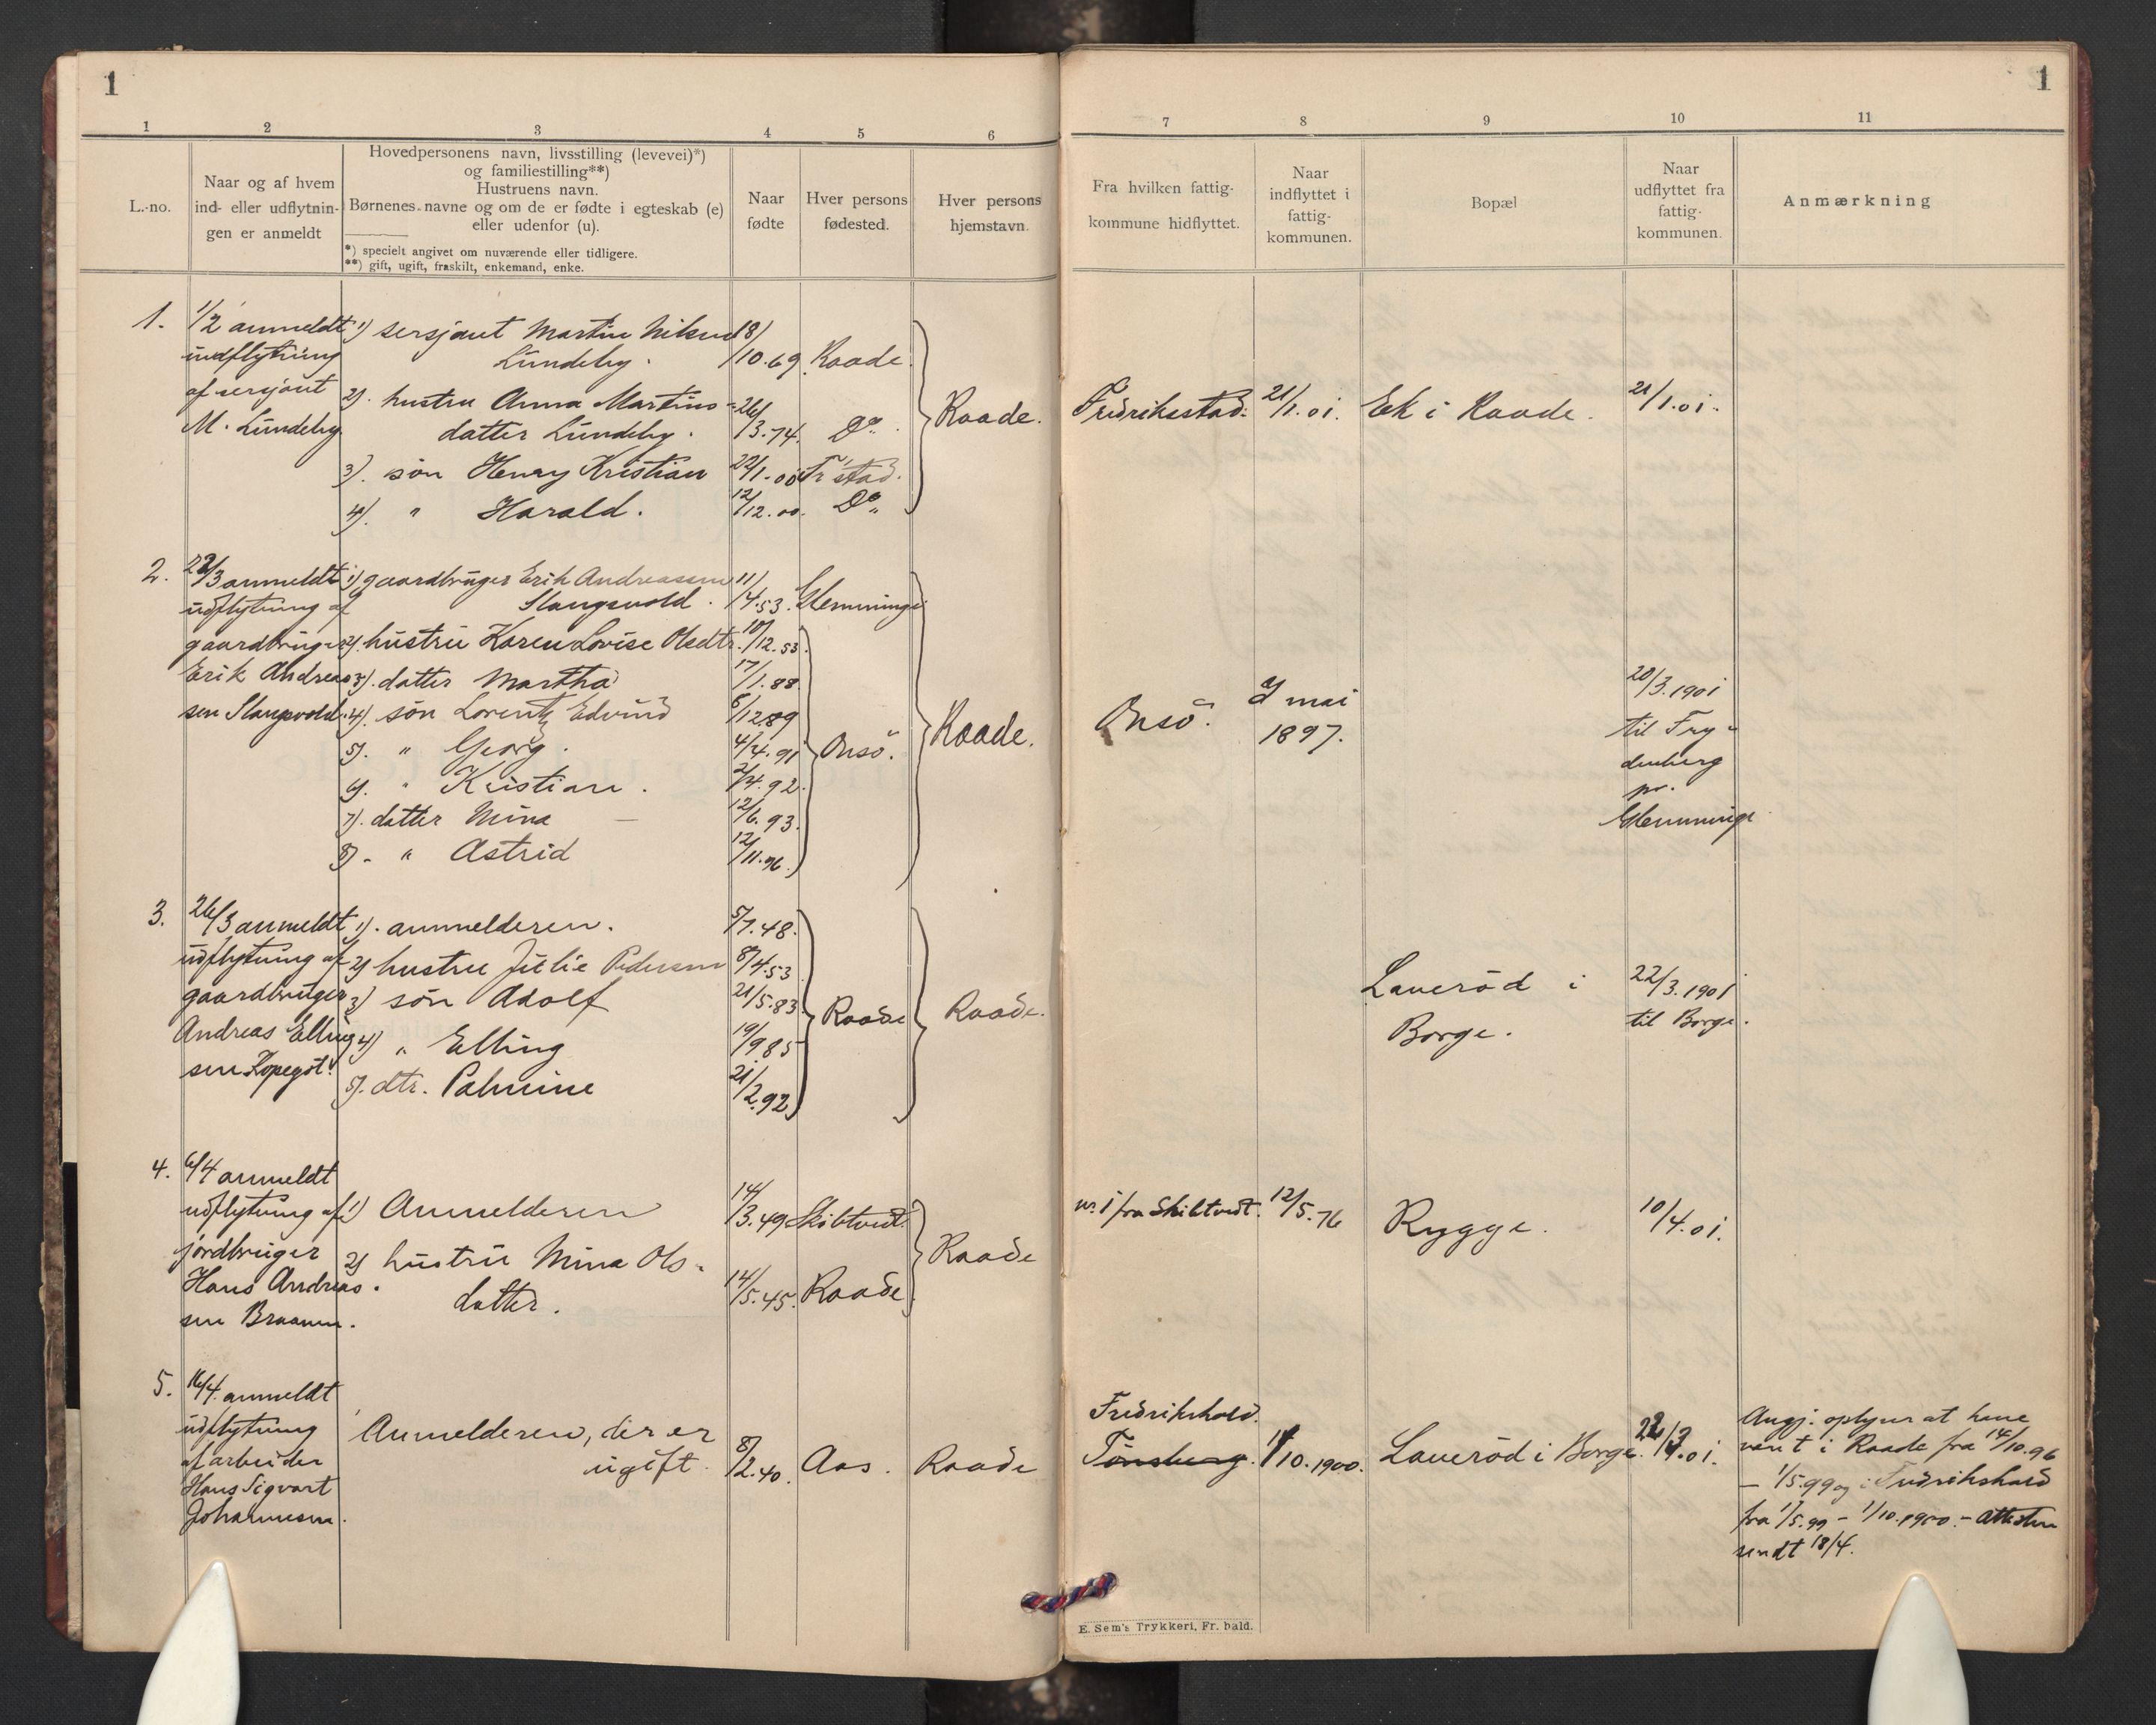 1
1
1 2 3 4 5 6
L.-no.
Naar og af hvem
ind- eller udflytnin-
gen er anmeldt
Hovedpersonens navn, livsstilling (levevei)*)
og familiestilling**)
Hustruens navn.
Børnenes navne og om de er fødte i egteskab (e)
eller udenfor (u).
*) specielt angivet om nuværende eller tidligere.
**) gift, ugift, fraskilt, enkemand, enke.
Naar
fødte
Hver persons
fødested.
Hver persons
hjemstavn.
7 8 9 10 11
Fra hvilken fattig-
kommune hidflyttet.
Naar
indflyttet i
fattig-
kommunen.
Bopæl
Naar
udflyttet fra
fattig-
kommunen.
Anmærkning
1.
1/2 anmeldt
indflytning
af sersjant
M. Lundeby.
1) sersjant Martin Nilsen
Lundeby.
18/
10.69 Raade.
2). hustru Anna Martins-
datter Lundeby.
26/
3.74. Do.
3). søn Henry Kristian 22/1.00 Fr'stad.
4). " Harald. 12/12.00. Do.
Raade.
Fredriksstad. 21/1.01. Ek i Raade. 21/1.01.
2.
22/3 anmeldt
udflytning af
gaardbruger
Erik Andreas-
sen Slangsvold.
1) gaardbruger Erik Andreassen
Slangsvold.
11/
4.53. Glemminge
2). hustru Karen Lovise Olsdtr. 10/12.53.
3). datter Martha 17/1.88.
4). søn Lorentz Edvind 6/12.89
5). " Georg. 4/4.91
6). " Kristian. 2/4.92.
7). datter Mina 12/6.93.
8). " Astrid 12/11.96.
Onsø.
Raade.
Onsø.
mai
1897.
20/3.1901
til Fry-
denberg
pr.
Glemminge
3.
26/3 anmeldt
udflytning af
gaardbruger
Andreas Elling
sen Kopegot.
1). anmelderen. 5/7.48.
2) hustru Julie Pedersen 8/4.53
3) søn Adolf 21/5.83.
4) " Elling 19/9.85
5). dtr. Palmine 21/2.92
Raade
Raade.
Lauerød i
Borge.
22/3.1901
til Borge.
4.
6/4 anmeldt
udflytning af
jordbruger
Hans Andreas-
sen Braanen.
1) Anmelderen 14/3.49 Skibtvedt.
2) hustru Mina Ols-
datter. 14/5.45. Raade
Raade
nr. 1 fra Skibtvedt. 12/5.76 Rygge. 10/4.01.
5.
16/4. anmeldt
udflytning
af arbeider
Hans Sigvart
Johannesen.
Anmelderen, der er
ugift. 8/2.40. Aas. Raade
Fredrikshald.
Tønsberg. 1/10.1900. Lauerød i Borge. 22/3.01.
Angj. oplyser at have
vært i Raade fra 14/10.96
– 1/5.99 og i Fredrikshald
fra 1/5.99 – 1/10.1900. – Attesten
sendt 18/4.
E. Sem's Trykkeri, Fr. hald.